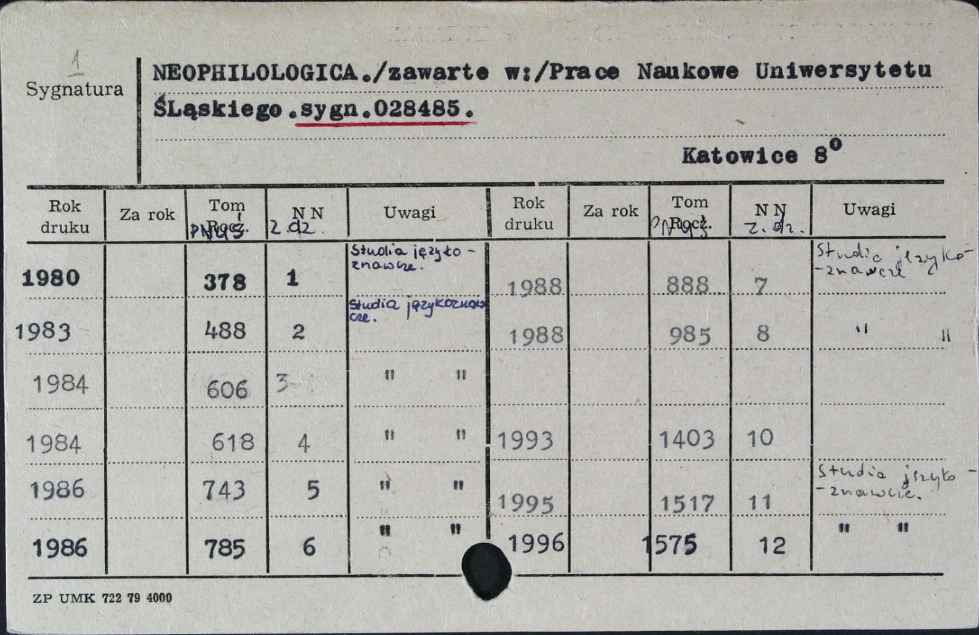 1
Sygnatura
NEOPHILOLOGICA./zawarte w:/Prace Naukowe Uniwersytetu
ŚLąskiego.sygn.028485.
Katowice 8º
Rok druku Za rok Tom Rocz. PNUŚ NN z. Uwagi Rok druku Za rok Tom Rocz. PNUŚ NN z. Uwagi
1980 378 1 Studia języko-znawcze. 1988 888 7 Studia języko--znawcze
1983 488 2 Studia językoznawcze. 1988 985 8 " "
1984 606 3 " "
1984 618 4 " " 1993 1403 10
1986 743 5 " " 1995 1517 11 Studia języko--znawcze.
1986 785 6 " " 1996 1575 12 " "
ZP UMK 722 79 4000